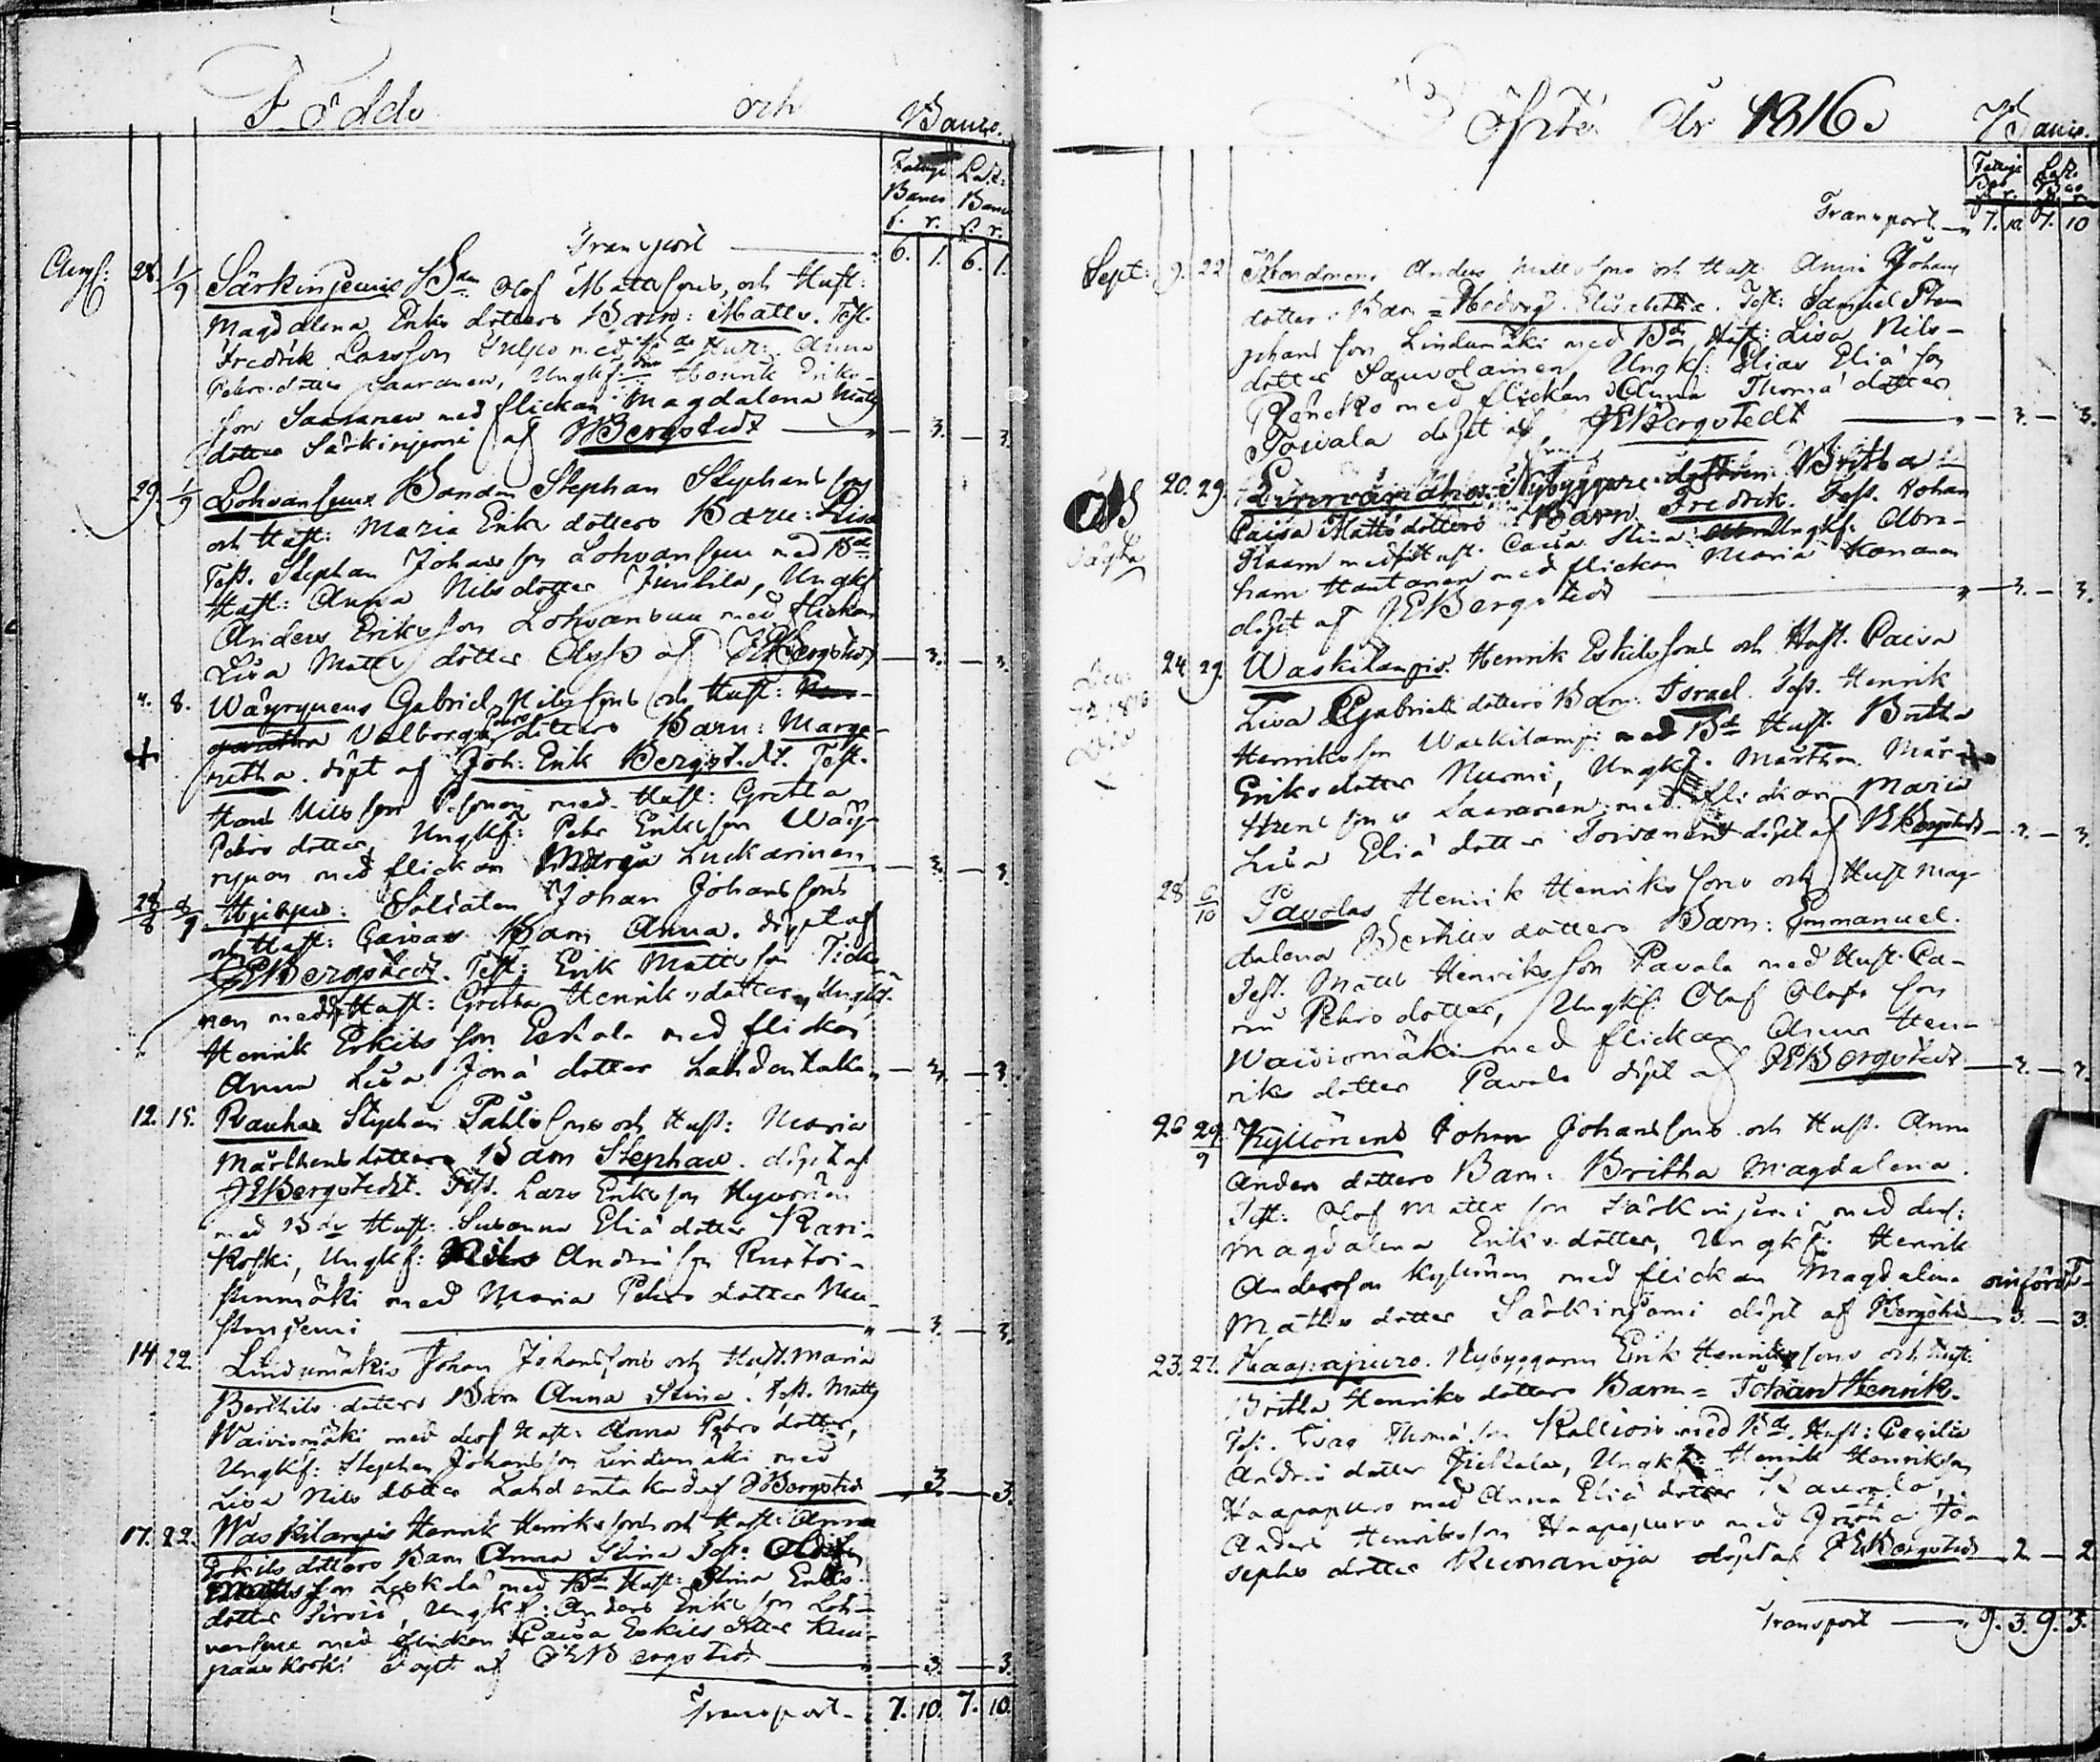 Födde och
Banco.
Fattigs Banco Last: Banco
s. r. s. r.
Transport — 6. 1. 6. 1.
Aug: 28. 1/9 Särkinjemis Bdn Olof Matts sons, och Hust:
Magdalena Eriks dotters Barn: Matts. Test.
Fredrik Larsson med Hust: Anna
Pehrs dotter Laaranen, Ungkf: Henrik Eriks-
son Saaranen med flickan Magdalena Matts
dotter Särkinjemi af Bergstedt — 3. — 3.
29. 1/9 Lohvansuus Bonden Stephan Stephans sons
och Hust: Maria Eriks dotters Barn: Lisa
Test. Stephan Johansson Lohvansuu med Bde
Hust: Anna Nils dotter Juntila, Ungkf
Anders Eriksson Lohvansuu med flickan
Lisa Matts dotter af JEBergstedt — 3. — 3.
4. 8. Wäyrynens Gabriel Nils sons och Hust:
Valborg dotters Barn: Marga-
retha. döpt af Joh: Erik Bergstedt. Test.
Hans Nilsson med Hust: Gretha
Pehrs dotter, Ungkf: Pehr Eriksson Wäy-
rynen med flickan Margeta Luckarinen — 3. — 3.
28/8 8/9 Soldaten Johan Johans sons
och Hust: Caisas Barn Anna. döpt af
JEBergstedt. Test: Erik Matts son Ticka-
nen med Hust: Gretha Henriks dotter, Ungkf.
Henrik Eskils son Eskola med flickan
Anna Lisa Jona dotter Lahdentaka — 3. — 3.
12. 15. Rauhas Stephan Påhls sons och Hust: Maria
Mårthens dotters Barn Stephan. döpt af
JEBergstedt. Test. Lars Eriksson Hyvönen
med Bde Hust: Susanna Elia dotter Kari-
koski, Ungkf: Nils Andrie son Ruotoi-
stenmäki med Maria Pehrs dotter Mu-
stonjemi — 3. — 3.
14. 22. Lindumäkis Johan Johans sons och Hust. Maria
Berthils dotters Barn Anna Stina. Test. Matts
Waivismäki med dess Hust: Anna Pehrs dotter,
Ungkf: Stephan Johans son Lindumäki med
Lisa Nils dotter Lahdentaka d. af JEBergstedt — 3. — 3.
17. 22. Waskilampis Henrik Henriks sons och Hust: Anna
Eskils dotters Barn Anna Stina Test:
son Leskelä med Bde Hust: Stina Eriks
dotter Sirviö, Ungkf: Anders Eriks son Loh-
vansuu med flickan Caisa Eskils dotter Kuu-
paaskoski döpt af JEBergstedt — 3. — 3.
Transport. 7. 10. 7. 10.
Döpte År 1816.
Banco.
Fattigs Bco Last. Bco
s. r. s. r.
Transport — 7. 10 7. 10
Sept: 9. 22 Anders Matts sons och Hust. Anna Johans
dotters Barn = Hedvig Elisabetha. Test: Samuel Ste-
phans son Lindumäki med Bde Hust: Lisa Nils-
dotter Sauvolainen, Ungkf: Elias Elia son
med flickan Anna Thoma dotter
Toivala döpt af JEBergstedt — 3. — 3.
20. 29. Nybyggare dottren Britha
Caisa Matts dotters Barn Fredrik. Test. Johan
Klaam med Hust. Caisa Stina Ungkf: Abra-
ham Hautanen med flickan Maria Kananen
döpt af JEBergstedt — 3. — 3.
24. 29. Waskilampis Henrik Eskils sons och Hust. Caisa
Lisa Gabriels dotters Barn. Israel. Test. Henrik
Henriks son Waskilampi med Bde Hust. Britha
Eriks dotter Nurmi, Ungkf. Mårthen Mår-
thens son Laaranen med flickan Maria
Lisa Elia dotter Toivanen döpt af JEBergstedt — 3. — 3.
28. 6/10 Pavolas Henrik Henriks sons och Hust Mag-
dalena Berthils dotters Barn: Emmanuel.
Test. Matts Henriks son Pavola med Hust. Ca-
rin Pehrs dotter, Ungkf. Olof Olofs son
Waivismäki med flickan Anna Hen-
riks dotter Pavola döpt af JEBergstedt — 3. — 3.
26 29/9 Kyllönens Johan Johans sons och Hust. Anna
Anders dotters Barn: Britha Magdalena.
Test: Olof Matts son Särkinjemi med dess:
Magdalena Eriks dotter, Ungkf: Henrik
Andersson Kyllönen med flickan Magdalena oinförd
Matts dotter Särkinjemi döpt af Bergstedt — 3. — 3.
23. 27. Haapapuro. Nybyggaren Erik Henriks sons och Hust:
Britha Henriks dotters Barn = Johan Henrik.
Test. Isac Thoma son Kallioi med Bde. Hust: Cecilia
Andrie dotter Jickälä, Ungkf: Henrik Henriksson
Haapapuro med Anna Elia dotter Kaurala,
Anders Henriksson Haapapuro med Jo-
sephs dotter döpt af JEBergstedt — 2. — 2
Transport — 9. 3. 9. 3.